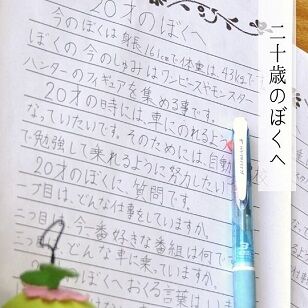 20才のぼくへ
今のぼくは身長161cmで体重は、43kgです。
ぼくの今のしゅみはワンピースやモンスター
ハンターのフィギュアを集める事です。
20才の時には、車にのれるよう
なっていたいです。そのためには、自動
で勉強して乗れるように努力したい
20才のぼくに、質問です。
一つ目は、どんな仕事をしていますか。
二つ目は、今一番好きな番組は何で
どんな車に乗っていますか。
ぼくへおくる言葉は
二十歳のぼくへ